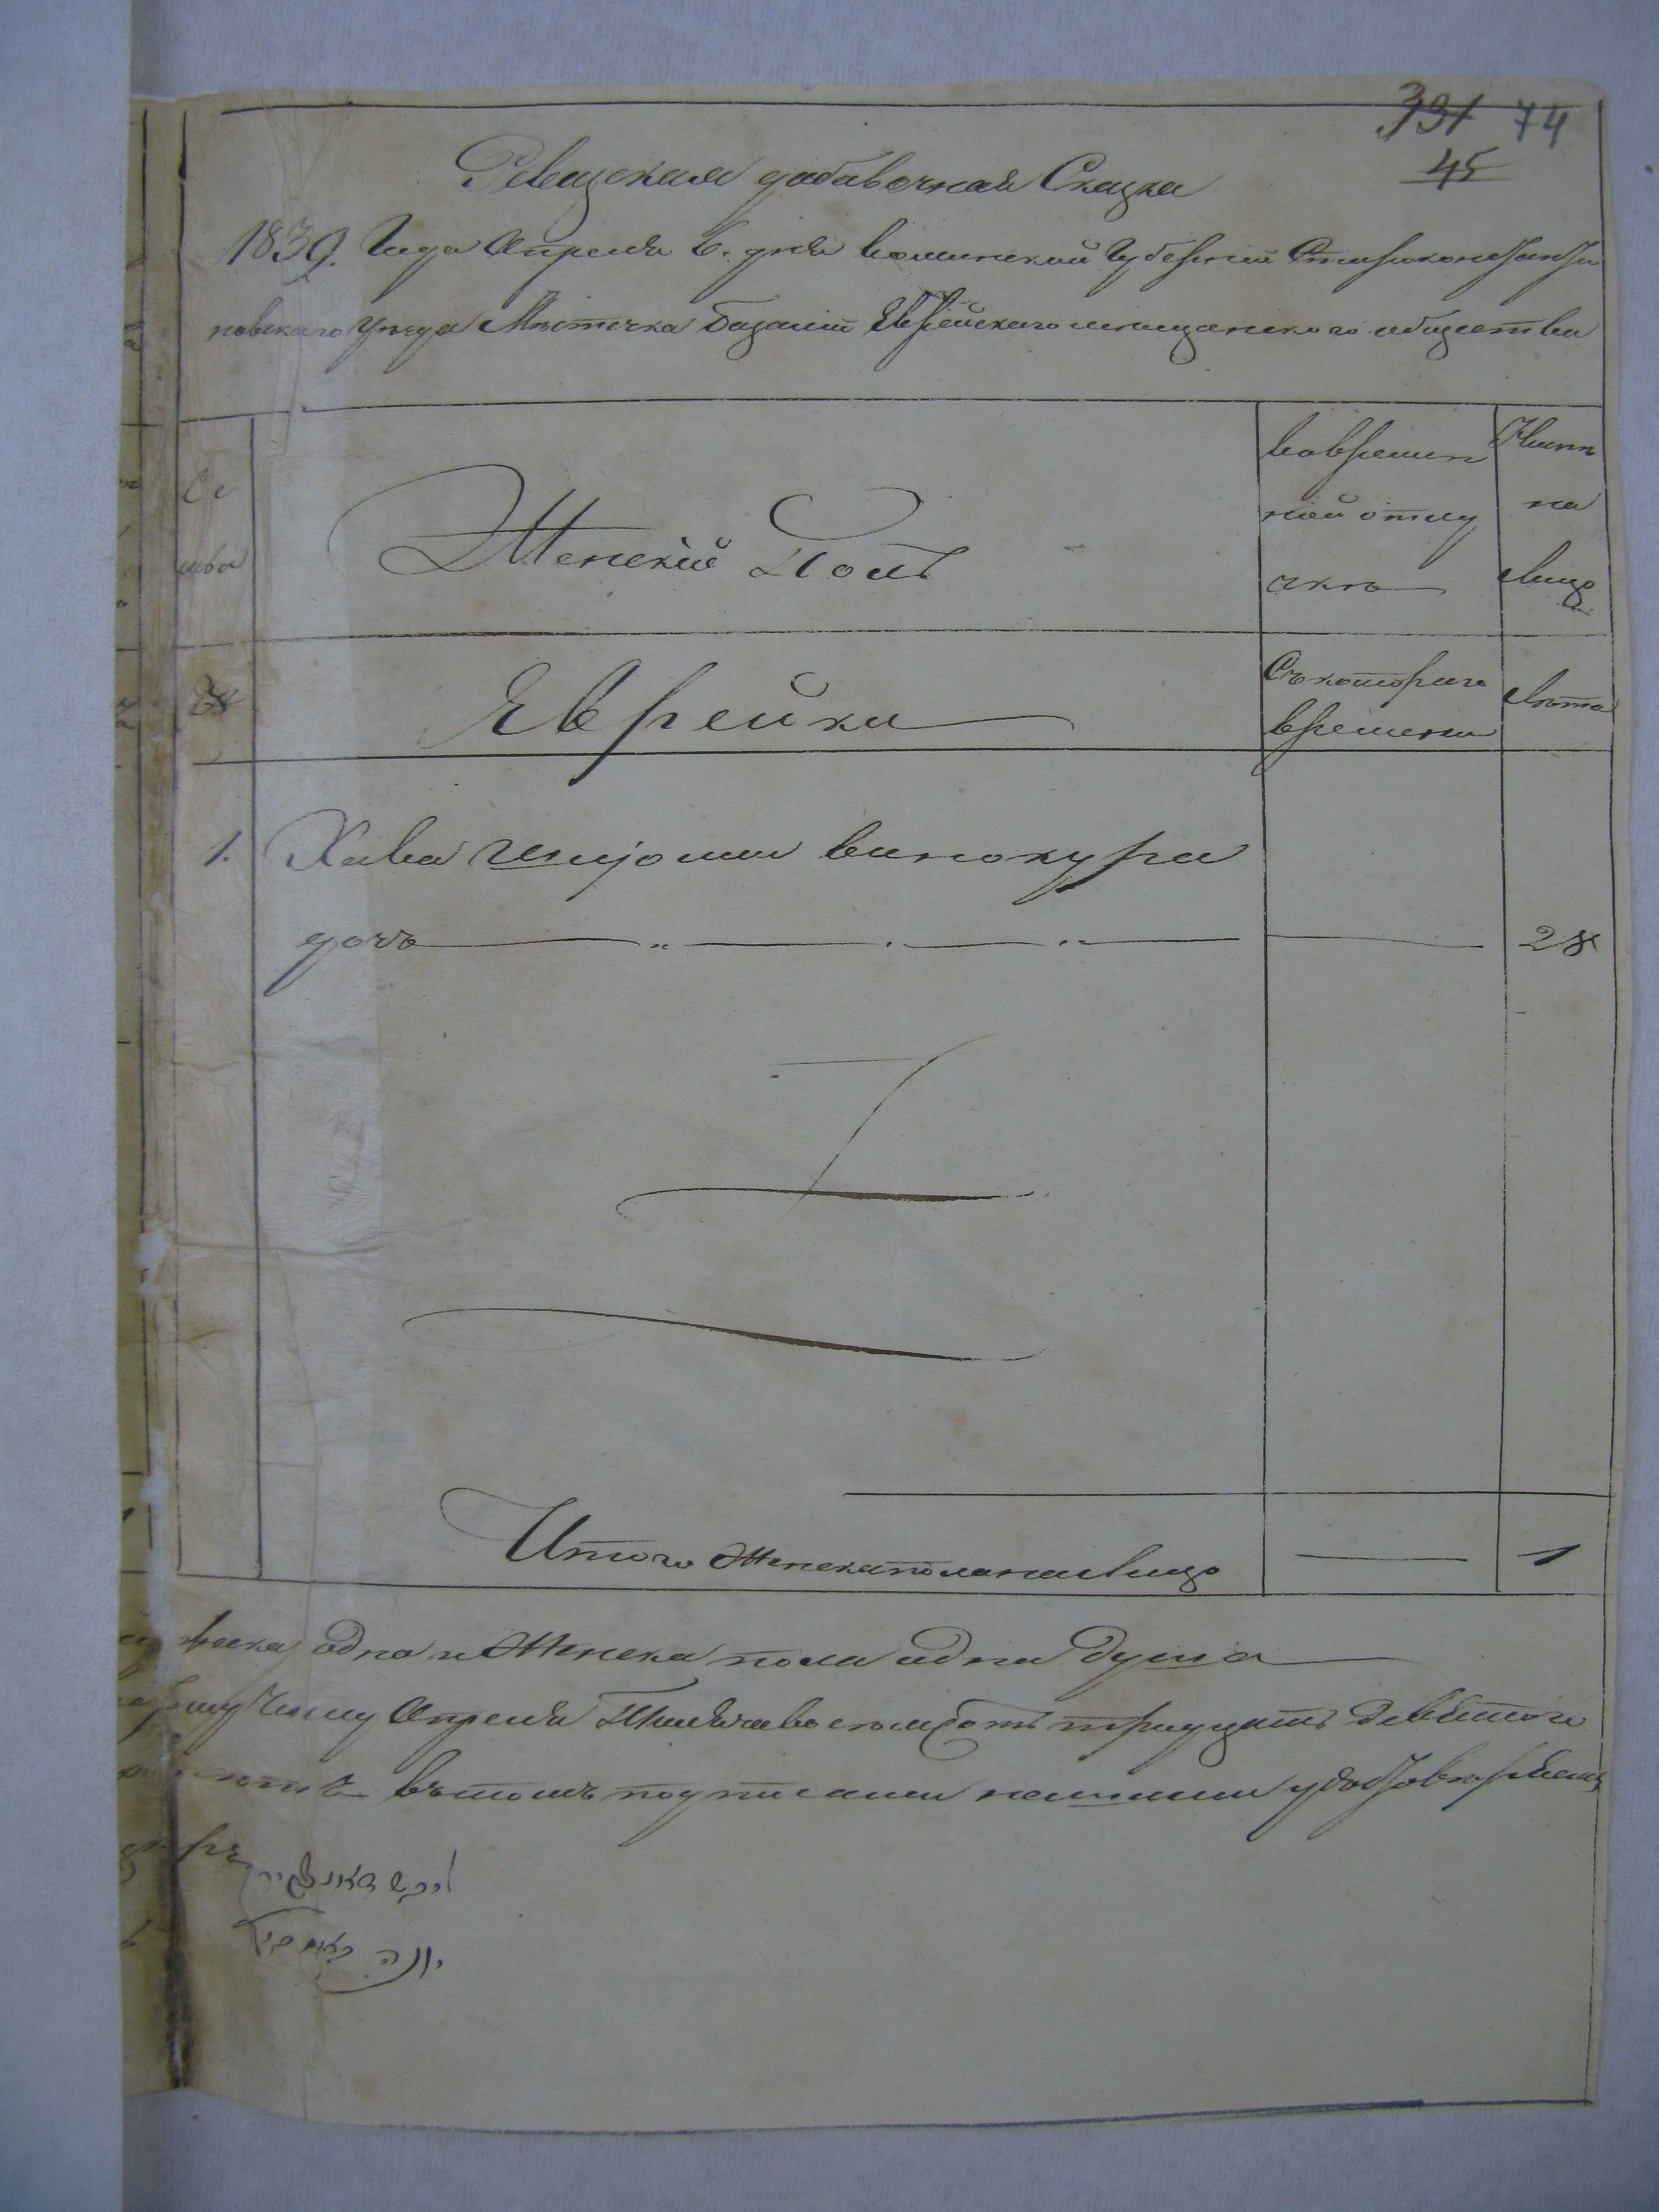 331 74
45
Ревизская добавочная Сказка
1839. Года Апреля 6. дня волинской Губернии Староконстанти
новского уезда Мѣстечка Базалии Еврейского мещанского общества
Се
мьи
Женский Полъ
вовремен
ной отлу
чкѣ
Ныне
на
лицо
Еврейки
Съкоторого
времени
Лѣта
1. Хава
винокура
дочь 28
Итого женска пола налицо 1
одна и женска пола одна душа
Апреля Тысяча восемьсотъ тридцать девятого
вътомъ подписами нашими удостоверяемъ
יונה